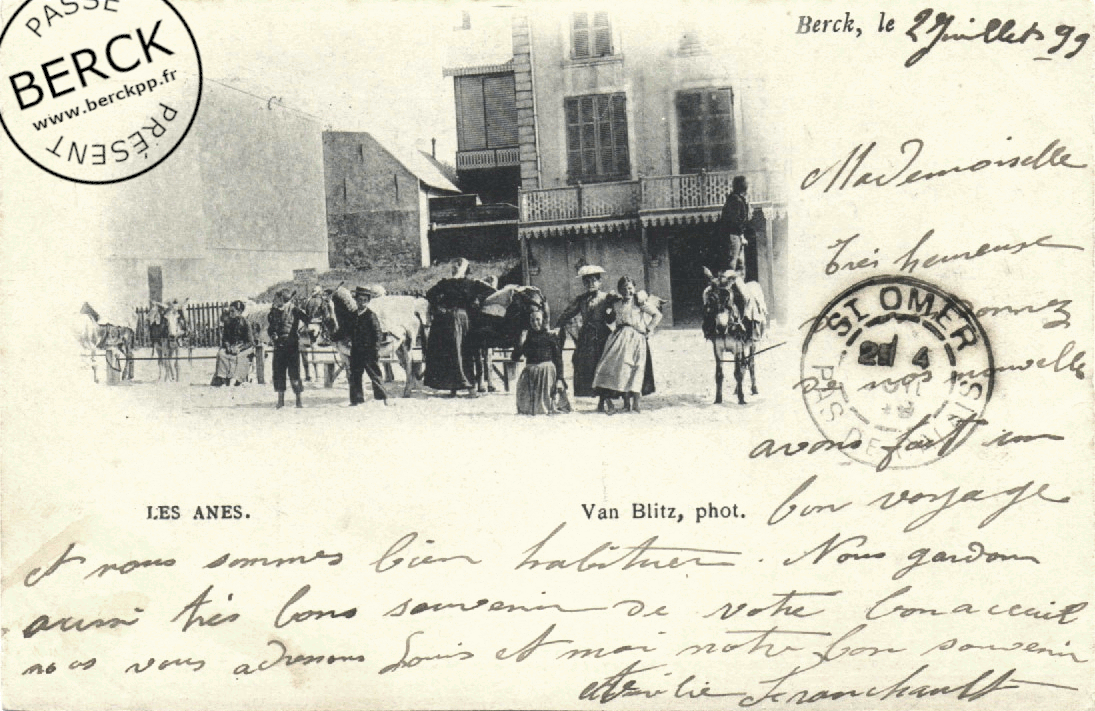 PASSÉ
BERCK
www.berckpp.fr
PRÉSENT
Berck, le 2 Juillet 99
Mademoiselle
Très heureuse
de vos nouvelle
avons fait un
bon voyage
LES ANES.
Van Blitz, phot.
ST OMER
4
PAS DE CALAIS
et nous sommes bien habituer. Nous gardons
aussi très bons souvenir de votre bon acceuil
nous vous adressons Louis et moi notre bon souvenir